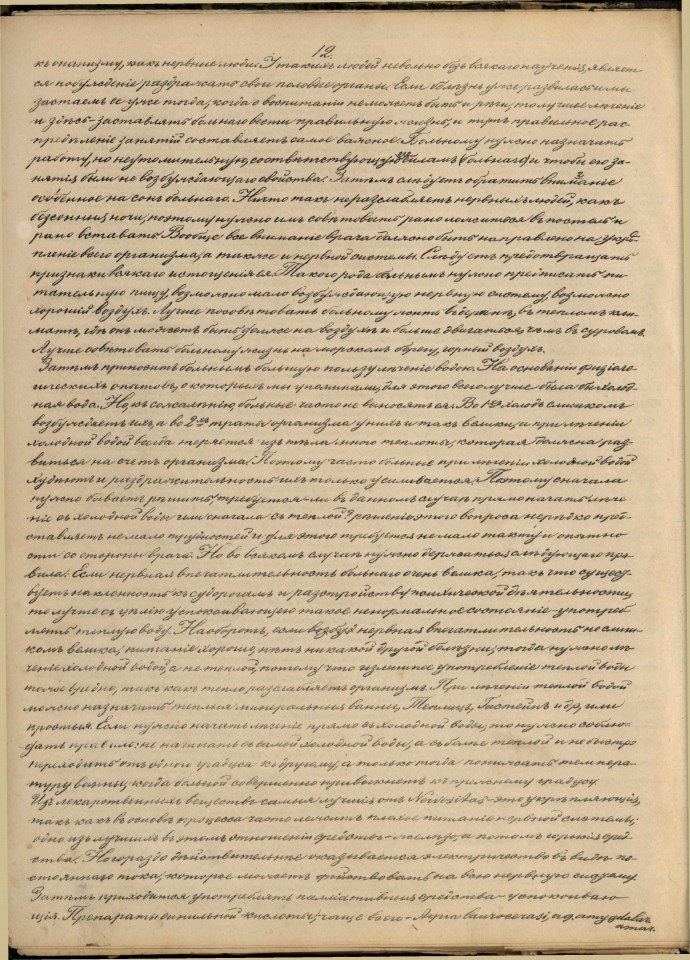 12.
къ онанизму, какъ нервные люди. У такихъ людей невольно безъ всякаго наученія, являет
ся побужденіе раздражать свои половые органы. Если болѣзнь уже развилась и мы
застаемъ ее уже тогда, когда о воспитаніи не можетъ быть и рѣчи, то лучшее лѣченіе
и здѣсь – заставлять больнаго вести правильную жизнь, и тутъ правильное рас-
предѣленіе занятій составляетъ самое важное. Больному нужно назначить
работу, но не утомительную, соотвѣтствующую силамъ больнаго и чтобы его за-
нятія были не возбуждающаго свойства. Затѣмъ слѣдуетъ обратить вниманіе
особенное на сонъ больнаго. Ничто такъ не разслабляетъ нервныхъ людей, какъ
безсонныя ночи, поэтому нужно имъ совѣтовать рано ложиться въ постель и
рано вставать. Вообще все вниманіе врача должно быть направлено на укрѣ-
пленіе всего организма, а также и нервной системы. Слѣдуетъ предотвращать
признаки всякаго истощенія ея. Такого рода больнымъ нужно предписать пи-
тательную пищу, возможно мало возбуждающую нервную систему, возможно
хорошій воздухъ. Лучше посовѣтовать больному жить въ деревнѣ, въ тепломъ кли-
матѣ, гдѣ онъ можетъ быть дольше на воздухѣ и больше двигаться, чѣмъ въ суровомъ.
Лучше совѣтовать больному жизнь на морскомъ берегу, горный воздухъ.
Затѣмъ приноситъ больнымъ большую пользу лѣченіе водою. На основаніи физіоло-
гическихъ опытовъ, о которыхъ мы упоминали, для этого всего лучше была бы холод-
ная вода. Но, къ сожалѣнію, больные часто не выносятъ ея. Во 1хъ холодъ слишкомъ
возбуждаетъ ихъ, а во 2хъ траты организма у нихъ и такъ велики, и при лѣченіи
холодной водой всегда теряется изъ тѣла много теплоты, которая должна раз-
виться на счетъ организма. Поэтому часто больные при лѣченіи холодной водой
худѣютъ и раздражительность ихъ только усиливается. Поэтому сначала
нужно бываетъ рѣшить, требуется-ли въ данномъ случаѣ прямо начать лѣче-
ніе съ холодной воды или сначала съ теплой? рѣшеніе этого вопроса нерѣдко пред-
ставляетъ не мало трудностей и для этого требуется не мало такту и опытно-
сти со стороны врача. Но во всякомъ случаѣ нужно держаться слѣдующаго пра-
вила: Если нервная впечатлительность больнаго очень велика, такъ что сущест-
вуетъ наклонность къ судорогамъ и разстройству психической дѣятельности,
то лучше съ цѣлью успокоивающею такое ненормальное состояніе – употреб-
лять теплую воду. Наоборотъ, если нервная впечатлительность не слиш-
комъ велика, питаніе хорошо, нѣтъ никакой другой болѣзни, тогда нужно лѣ-
ченіе холодной водой, а не теплой, потому что излишнее употребленіе теплой воды
тоже вредно, такъ какъ тепло разслабляетъ организмъ. При лѣченіи теплой водой
можно назначить теплыя минеральныя ванны, Теплицъ, Гастейнъ и др. или
простыя. Если нужно начать лѣченіе прямо съ холодной воды, то нужно соблю-
дать правило: не начинать съ самой холодной воды, а съ болѣе теплой и не быстро
переходить отъ одного градуса къ другому, а только тогда понижать темпера-
туру ванны, когда больной совершенно привыкнетъ къ прежнему градусу.
Изъ лекарственныхъ веществъ самыя лучшія отъ Nervositas – это укрѣпляющія,
такъ какъ въ основѣ процесса часто лежитъ плохое питаніе нервной системы;
одно изъ лучшихъ въ этомъ отношеніи средствъ – желѣзо, а потомъ и другія сред-
ства. Но гораздо дѣйствительнѣе оказывается электричество въ видѣ по-
стояннаго тока, которое можетъ дѣйствовать на всю нервную систему.
Затѣмъ приходится употреблять палліативныя средства – успокоиваю-
щія. Препараты синильной кислоты, чаще всего – Aqua laurocerasi, aq. amygdalar.
amar.